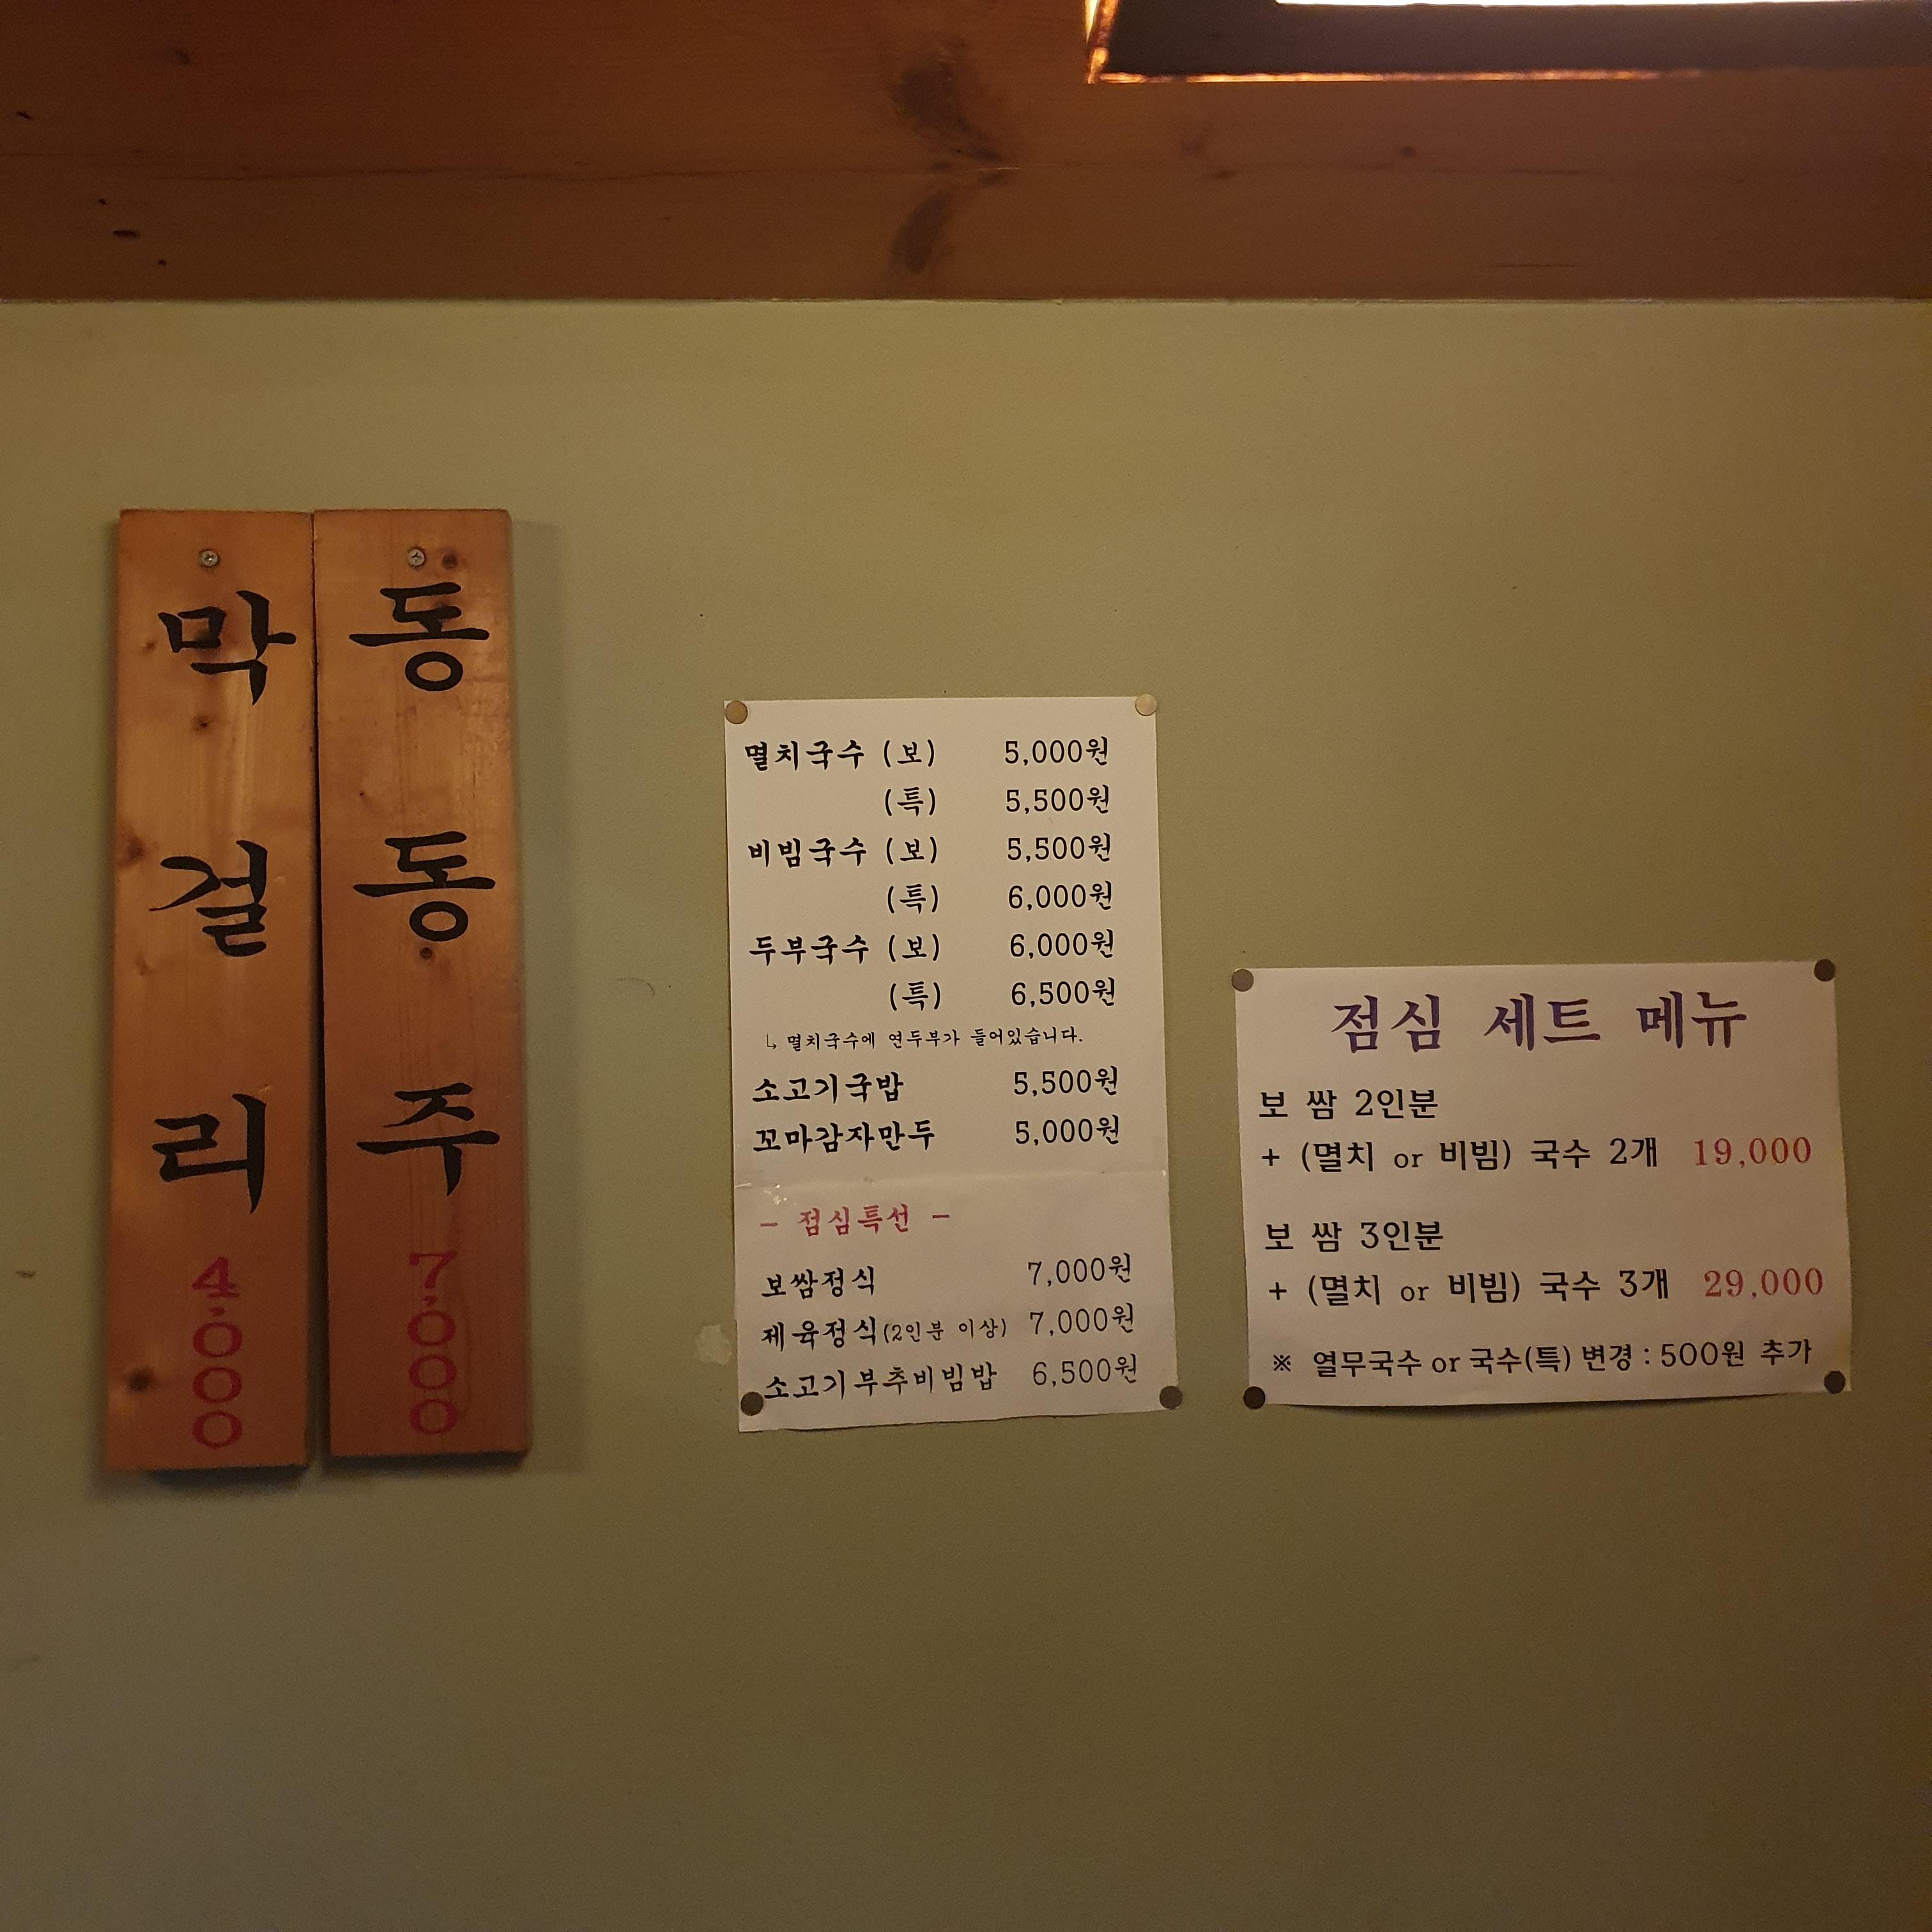 막걸리 4,000
동동주 7,000
멸치국수 (보) 5,000원
(특) 5,500원
비빔국수 (보) 5,500원
(특) 6,000원
두부국수 (보) 6,000원
(특) 6,500원
↳ 멸치국수에 연두부가 들어있습니다.
소고기국밥 5,500원
꼬마감자만두 5,000원
- 점심특선 -
보쌈정식 7,000원
제육정식(2인분 이상) 7,000원
소고기부추비빔밥 6,500원
점심 세트 메뉴
보 쌈 2인분
+ (멸치 or 비빔) 국수 2개 19,000
보 쌈 3인분
+ (멸치 or 비빔) 국수 3개 29,000
※ 열무국수 or 국수(특) 변경 : 500원 추가